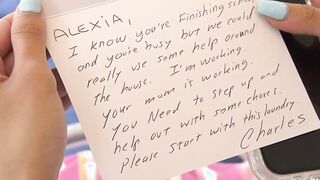 ALEXIA,
I know you're Finishing school
and you're busy but we could
really use some help around
the house. I'm working.
Your mom is working.
You Need to step up and
help out with some chores.
please start with this laundry.
Charles